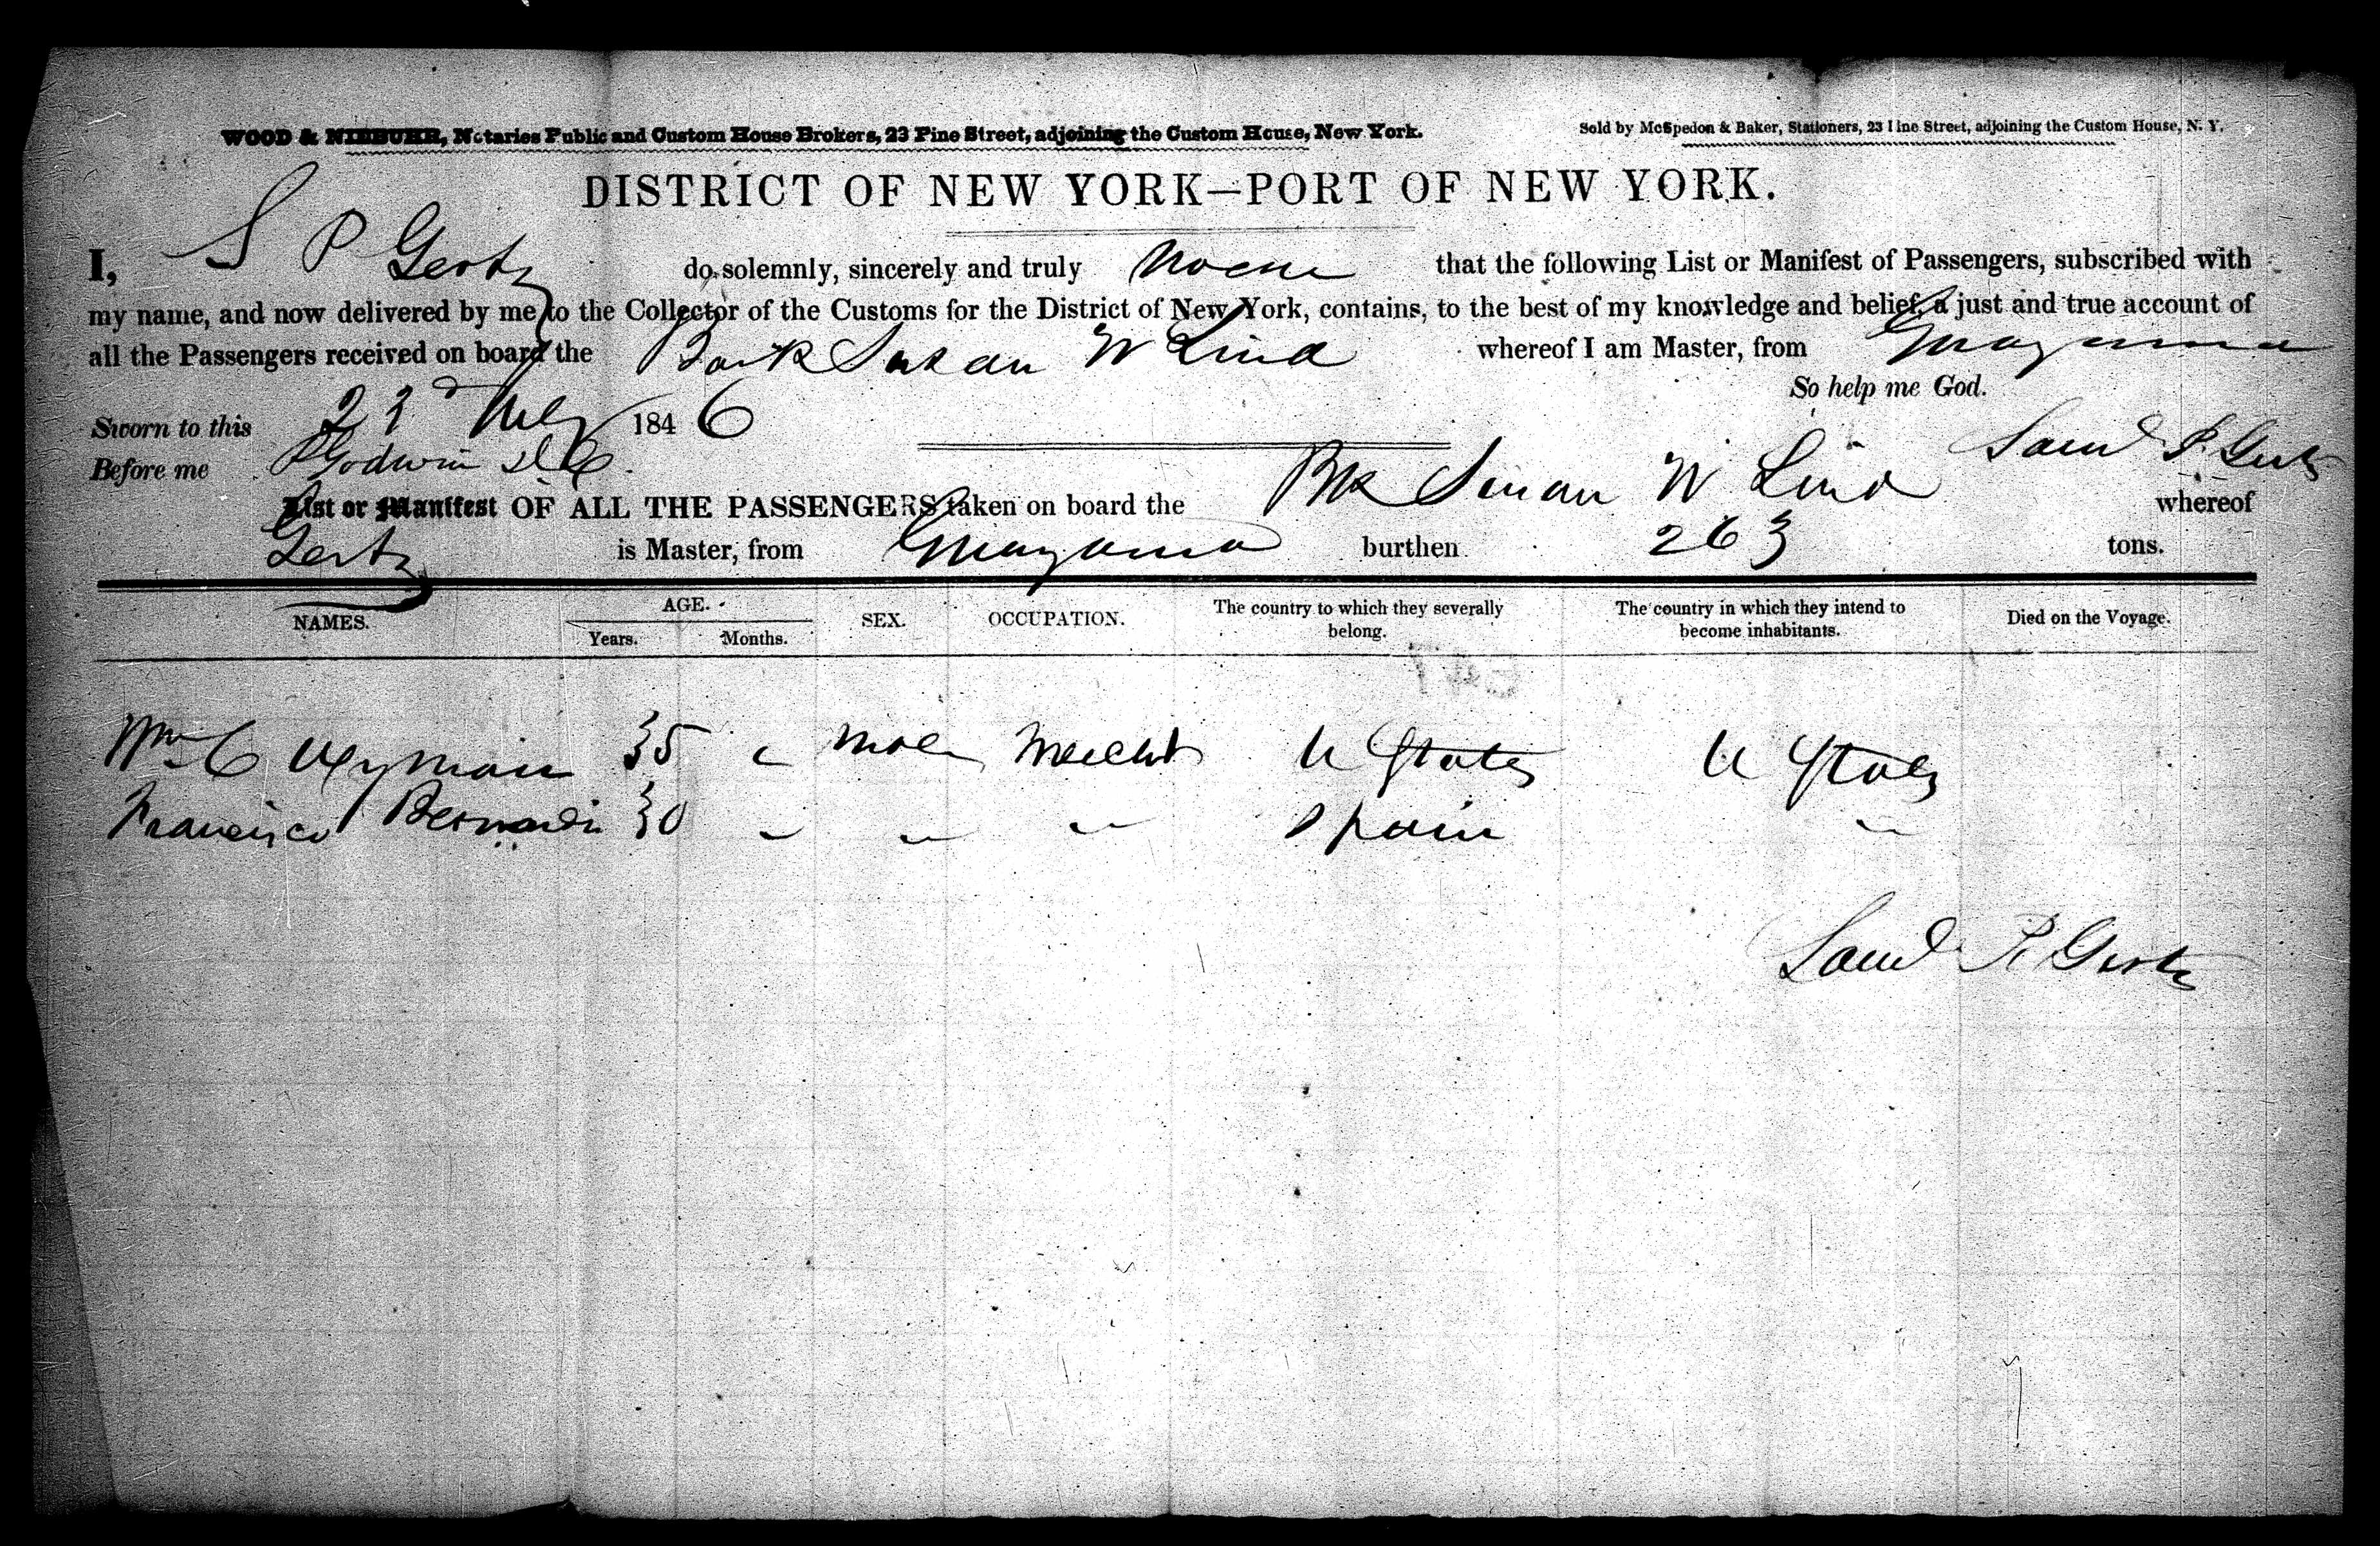 WOOD & NIEBUHR, Notaries Public and Custom House Brokers, 23 Pine Street, adjoining the Custom House, New York.
Sold by McSpedon & Baker, Stationers, 23 Pine Street, adjoining the Custom House, N. Y.
DISTRICT OF NEW YORK—PORT OF NEW YORK.
I, S P Gertz do solemnly, sincerely and truly that the following List or Manifest of Passengers, subscribed with
my name, and now delivered by me to the Collector of the Customs for the District of New York, contains, to the best of my knowledge and belief, a just and true account of
all the Passengers received on board the Bark Susan W Lind whereof I am Master, from
So help me God.
Sworn to this 1846
Saml P. Gertz
Before me Godwin
List or Manifest OF ALL THE PASSENGERS taken on board the Bk Susan W Lind whereof
Gertz is Master, from burthen 263 tons.
NAMES. AGE. Years. Months. SEX. OCCUPATION. The country to which they severally belong. The country in which they intend to become inhabitants. Died on the Voyage.
Wm C Wyman 35 male Mercht U States U States
Francisco 30 Spain
Saml P. Gertz